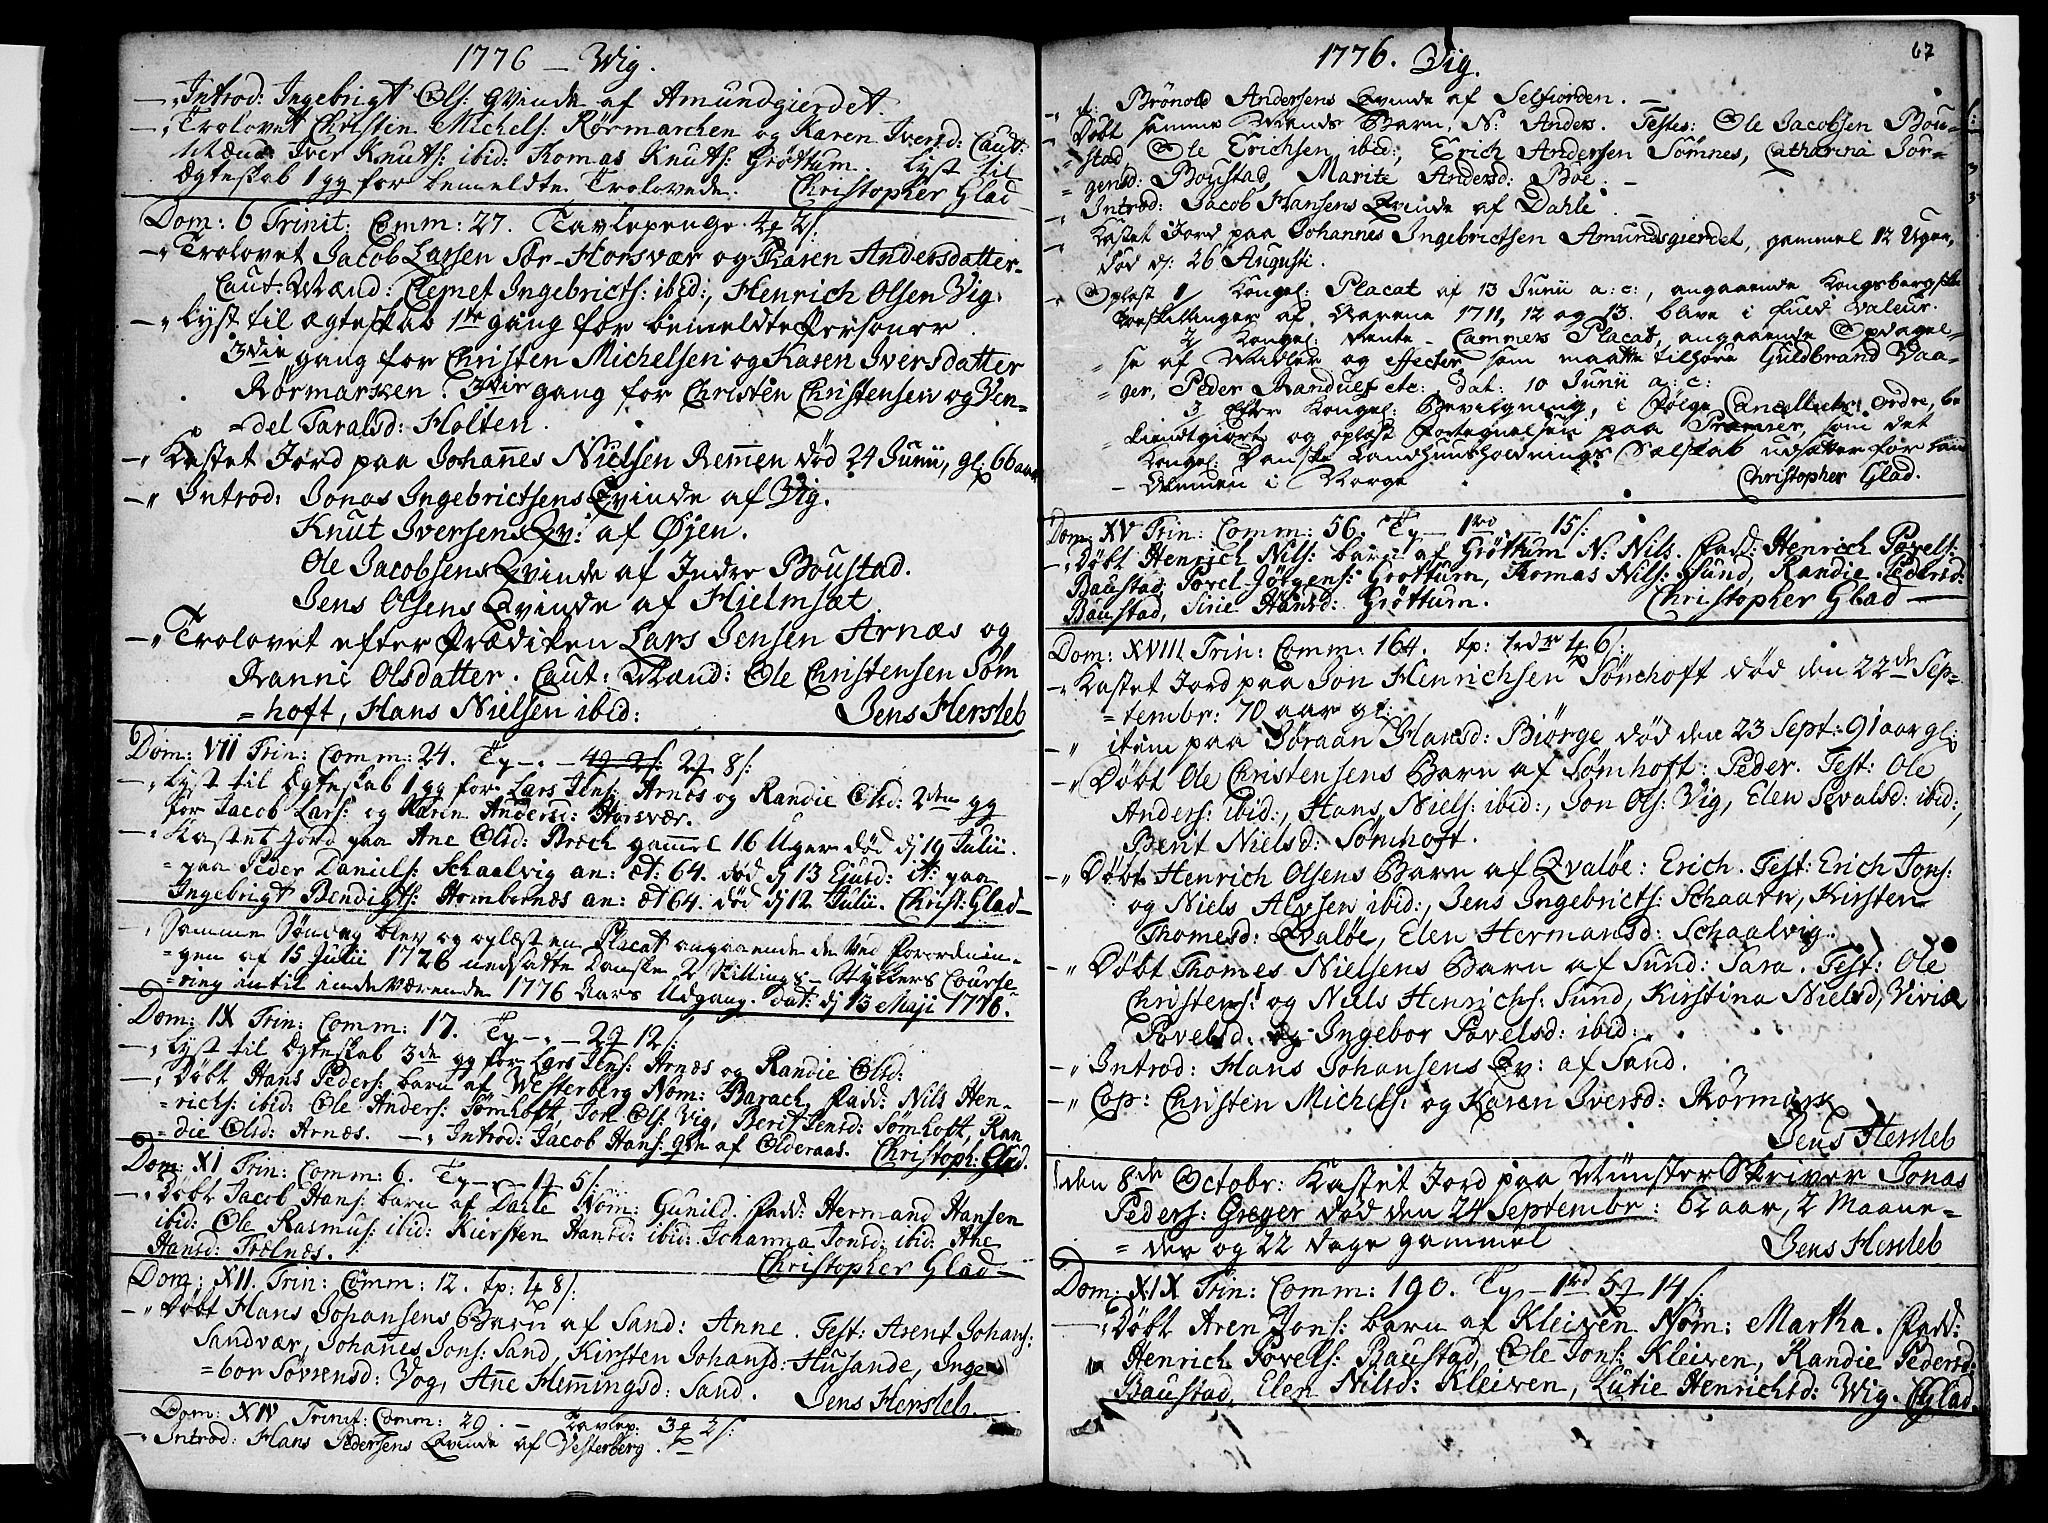 1776 – Wig.
–„ Introd: Ingebrigt Ols: qvinde af Amundgierdet.
–„ Trolovet Christen Michels: Rørmarchen og Karen Iversd: Caut:
Mænd: Iver Knuts: ibid: Tomas Knuts: Grøttum. Lyst til
Ægteskab 1 gg for bemeldte Trolovede. Christopher Glad
Dom: 6 Trinit: Comm: 27. Tavlepenge 2 s:
–„ Trolovet Jacob Larsen Sør-Horsvær og Karen Andersdatter
Caut: Mænd: Clemet Ingebricts: ibid:, Henrich Olsen Vig.
–„ Lyst til ægteskab 1te gang for bemeldte Personer.
3die gang for Christen Michelsen og Karen Iversdatter
Rørmarken. 3die gang for Christen Christensen og Ven-
=del Taralsd: Holten.
–„ Kastet Jord paa Johannes Nielsen Remen død 24 Junii, gl: 66 aar
–„ Introd: Jonas Ingebrictsens Qvinde af Vig.
Knut Iversens Qv: af Øjen.
Ole Jacobsens Qvinde af Indre Boustad.
Jens Olsens Qvinde af Hielmsæt
–„ Trolovet efter Prædiken Lars Jensen Arnæs og
Ranni Olsdatter. Caut: Mænd: Ole Christensen Søm
=hoft, Hans Nielsen ibid: Jens Hersleb
Dom: VII Trin: Comm: 24. Tp – 8 s:
–„ Lyst til Ægteskab 1 gg for Lars Jens: Arnes og Randie Olsd: 2den gg
for Jacob Lars: og Karen Anders: Horsvær.
–„ Kastet jord paa Ane Olsd: Brech gammel 16 Uger død d: 19 Julii.
=paa Peder Daniels: Schaalvig an: æt: 64. død d: 13 Ejusd: it: paa
Ingebrigt Bendigts: Hombornæs an: æt 64. død d: 12 Julii. Christ: Glad
–„ Samme Søndag blev og oplæst en Placat angaaende de ved Forordnin-
=gen af 15 Julii 1726 nedsatte Danske 2 Skillings-Stykkers Course-
=ring intil indeværende 1776 Aars Udgang. Dat: d: 13 Maji 1776.
Dom: IX Trin: Comm: 17. Tp – 12 s:
–„ Lyst til Ægteskab 3de gg for Lars Jens: Arnæs og Randie Olsd:
–„ Døbt Hans Peders: barn af Westerberg Nom: Barach, Fadd: Nils Hen-
=richs: ibid: Ole Anders: Sømhoft, Jon Ols: Vig, Berit Jensd: Sømhoft, Ran
=die Olsd: Arnæs. –„ Introd: Jacob Hans: qv af Olderaas. Christoph: Glad.
Dom: XI Trin: Comm: 6. Tp – 5 s:
–„ Døbt Jacob Hans: barn af Darle Nom: Gunild. Fadd: Hermand Hansen
ibid: Ole Rasmus: ibid: Kiersten Hansd: ibid: Johanna Jonsd: ibid: Ane
Hansd: Trælnæs. Christopher Glad
Dom: XII. Trin: Comm: 12. tp: 8 s:
–„ Døbt Hans Johansens Barn af Sand: Anne. Test: Arent Johans:
Sandvær, Johanes Jons: Sand, Kirsten Johansd: Husande, Inge
=bor Sørensd: Vog, Ane Hemmingsd: Sand. Jens Hersleb.
Dom: XIV Trinit: Comm: 29. – Tavlep: 3 s:
–„ Introd: Hans Pedersens Qvinde af Vesterberg.
1776. Vig. 67
–„ it: Brønold Andersens Qvinde af Selfiorden.
–„ Døbt samme Mands Barn, N: Anders. Testes: Ole Jacobsen Bou-
=stad, Ole Erichsen ibid:, Erich Andersen Sømnes, Catharina Jør-
=gensd: Boustad, Marite Andersd: Boe.
–„ Introd: Jacob Hansens Qvinde af Dahle.
–„ Kastet Jord paa Johannes Ingebrictsen Amundsgierdet, gammel 12 Uger,
død d: 26 Augusti.
–„ Oplæst 1 Kongel: Placat af 13 Junii a: c:, angaaende Kongsbergske
Toeskillinger af Aarene 1711, 12 og 13. blive i fuld Valeur.
2 Kongel: Rente-Cammers Placat, angaaende Opdagel-
=se af Midler og effecter som maatte tilhøre Guldbrand Baa-
=ger, Peder Randulf etc: dat: 10 Junii a: c:
3 Efter Kongel: Bevilgning, i følge Cancellieets ordre, be
=kiendtgiort og oplæst Fortegnelsen paa Præmier, som det
Kongel: Danske Landhuusholdnings Sælskab udsætter for
i Norge Christopher Glad.
Dom: XV Trin: Comm: 56. Tp – 15 s:
–„ Døbt Henrich Nils: barn af Grøttum N: Nils. Fadd: Henrich Povels:
Baustad, Povel Jørgens: Grøttum, Thomas Nils: Sund, Randie Pedersd:
Baustad, Sirie Hansd: Grøttum. Christopher Glad
Dom: XVIII Trin: Comm: 164. tp: 6 s:
–„ Kastet Jord paa Jon Henrichsen Sømhoft død den 22de Sep-
=tembr: 70 aar gl:
–„ item paa Jøraan Hansd: Biørge død den 23 Sept: 91 aar gl:
–„ Døbt Ole Christensens Barn af Sømhoft: Peder. Test: Ole
Anders: ibid:, Hans Niels: ibid:, Jon Ols: Vig, Elen Sevalsd: ibid:,
Berit Nielsd: Sømhoft.
–„ Døbt Henrich Olsens Barn af Qvaløe: Erich. Test: Erich Jons:
og Niels Alvsen ibid:, Jens Ingebricts: Schaarn, Kirsten
Thomesd: Qvaløe, Elen Hermansd: Schaalvig.
–„ Døbt Thomes Nielsens Barn af Sund: Sara. Test: Ole
Christens: og Niels Henrichs: Sund, Kirstina Nielsd, Vivik
Povelsd. og Ingebor Povelsd: ibid:
–„ Introd: Hans Johansens Qv: af Sand.
–„ Cop: Christen Michels: og Karen Iversd: Rørmark
Jens Hersleb
den 8de Octobr: Kastet Jord paa Münster Skriver Jonas
Peders: Greger død den 24 Septembr: 62 aar, 2 Maane-
=der og 22 dage gammel Jens Hersleb
Dom: XIX Trin: Comm: 190. Tp – 1rd 14 s:
–„ Døbt Aren Jons: barn af Kleiven Nom: Martha. Fadd:
Henrich Povels: Baustad, Ole Jons: Kleiven, Randie Pedersd:
Baustad, Elen Nilsd: Kleiven, Lutie Henrichsd: Wig. CGlad.